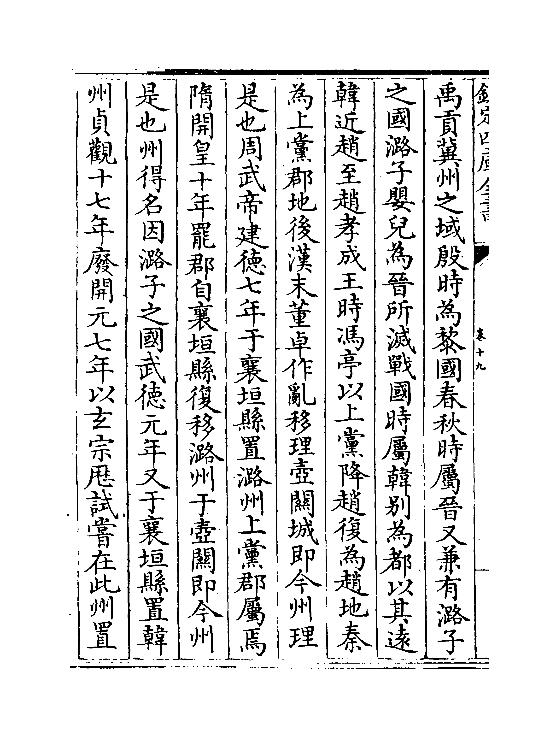 欽定四庫全書
卷十九
禹貢冀州之域殷時為黎國春秋時屬晉又兼有潞子
之國潞子嬰兒為晉所滅戰國時屬韓别為都以其遠
韓近趙至趙孝成王時馮亭以上黨降趙復為趙地秦
為上黨郡地後漢末董卓作亂移理壺關城即今州理
是也周武帝建德七年于襄垣縣置潞州上黨郡屬焉
隋開皇十年罷郡自襄垣縣復移潞州于壺關即今州
是也州得名因潞子之國武德元年又于襄垣縣置韓
州貞觀十七年廢開元七年以玄宗歴試嘗在此州置